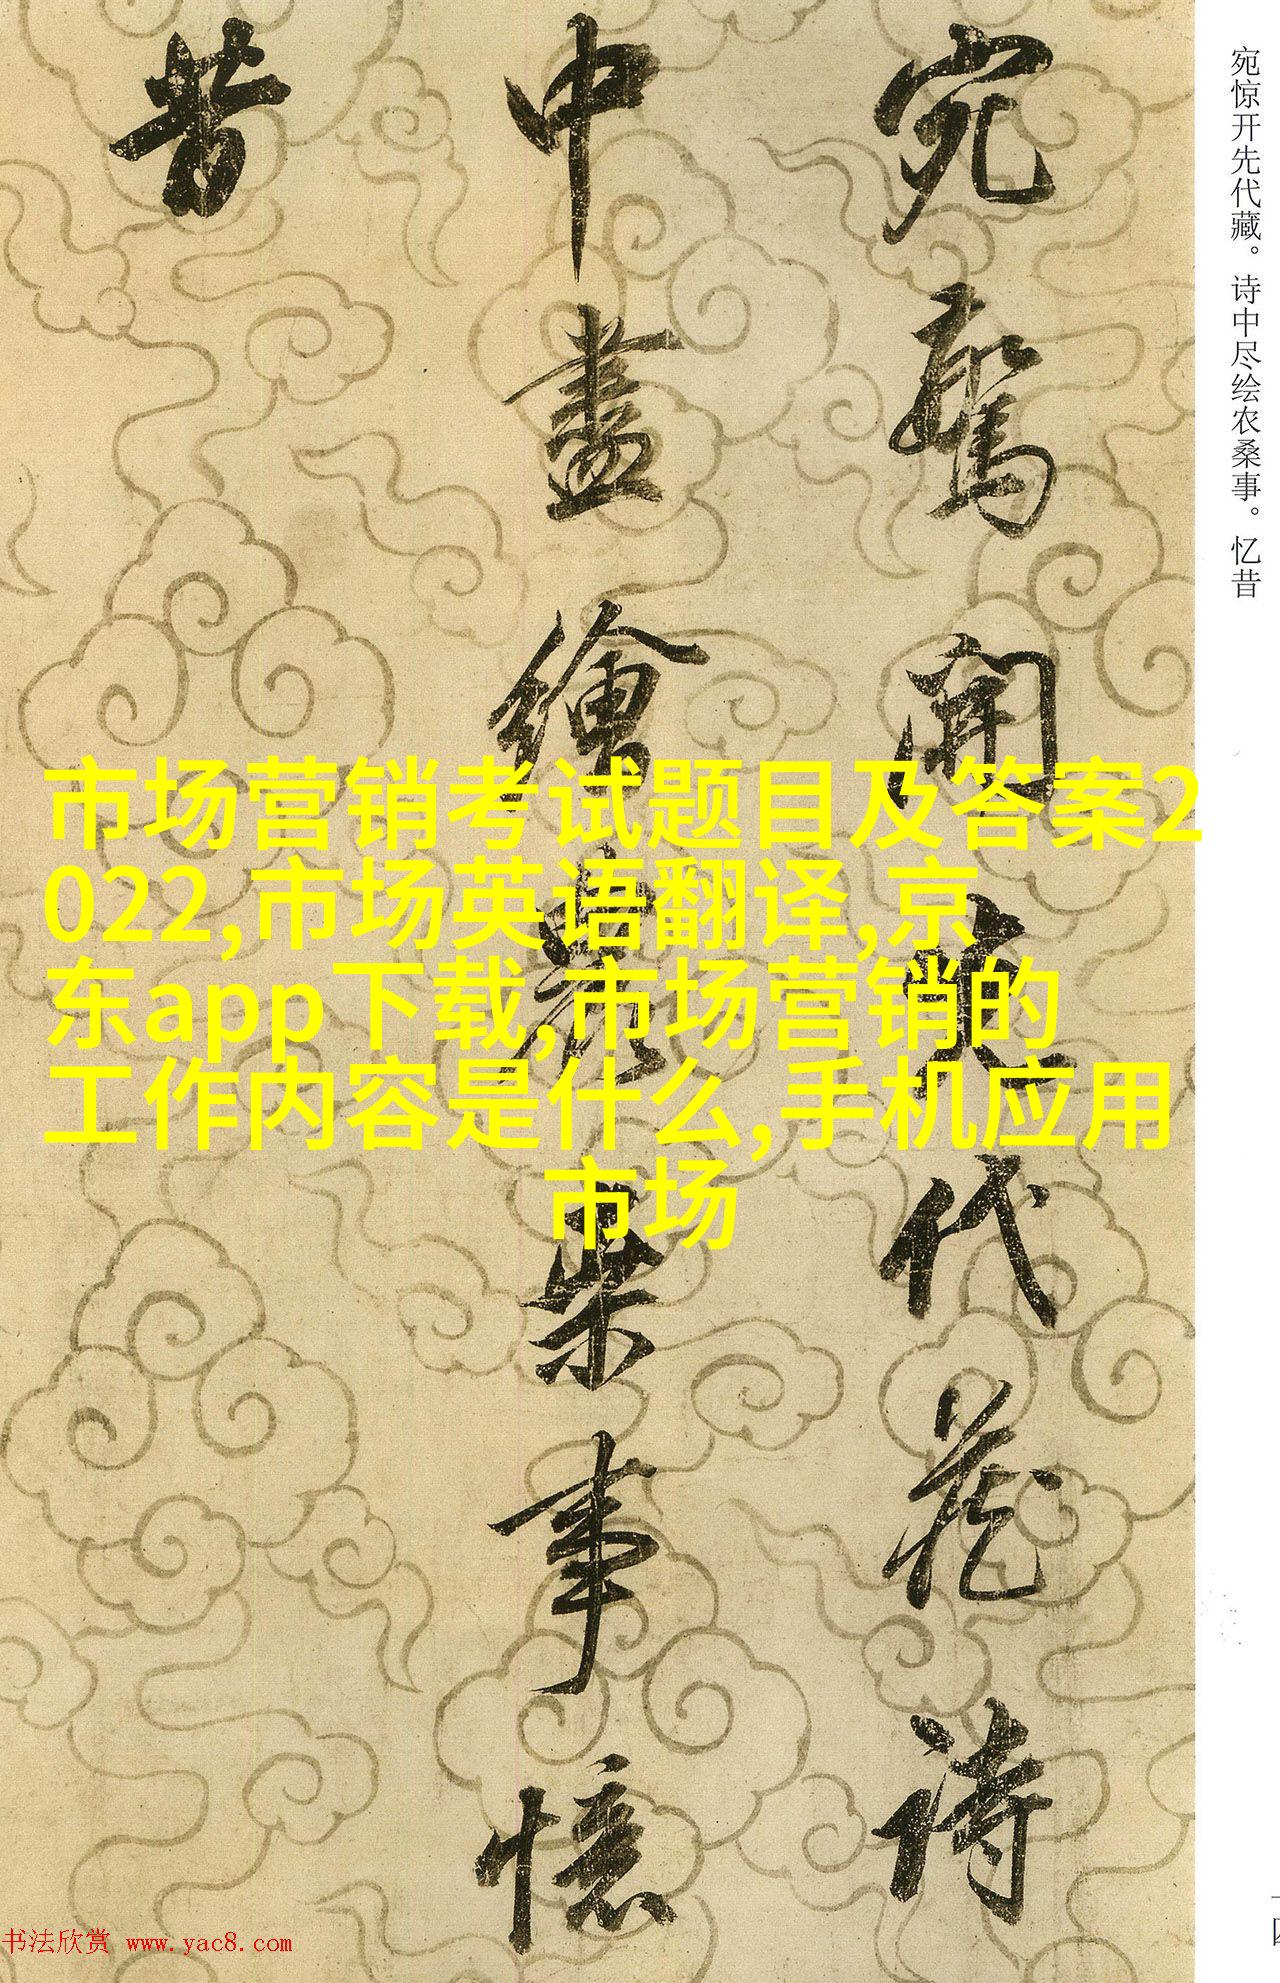 宛驚開先代藏詩
中盡繪農桑事憶
昔
宛惊开先代藏。诗中尽绘农桑事。忆昔
市场营销考试题目及答案2
022,市场英语翻译,京
东app下载,市场营销的
工作内容是什么,手机应用
市场
书法欣赏 www.yac8.com